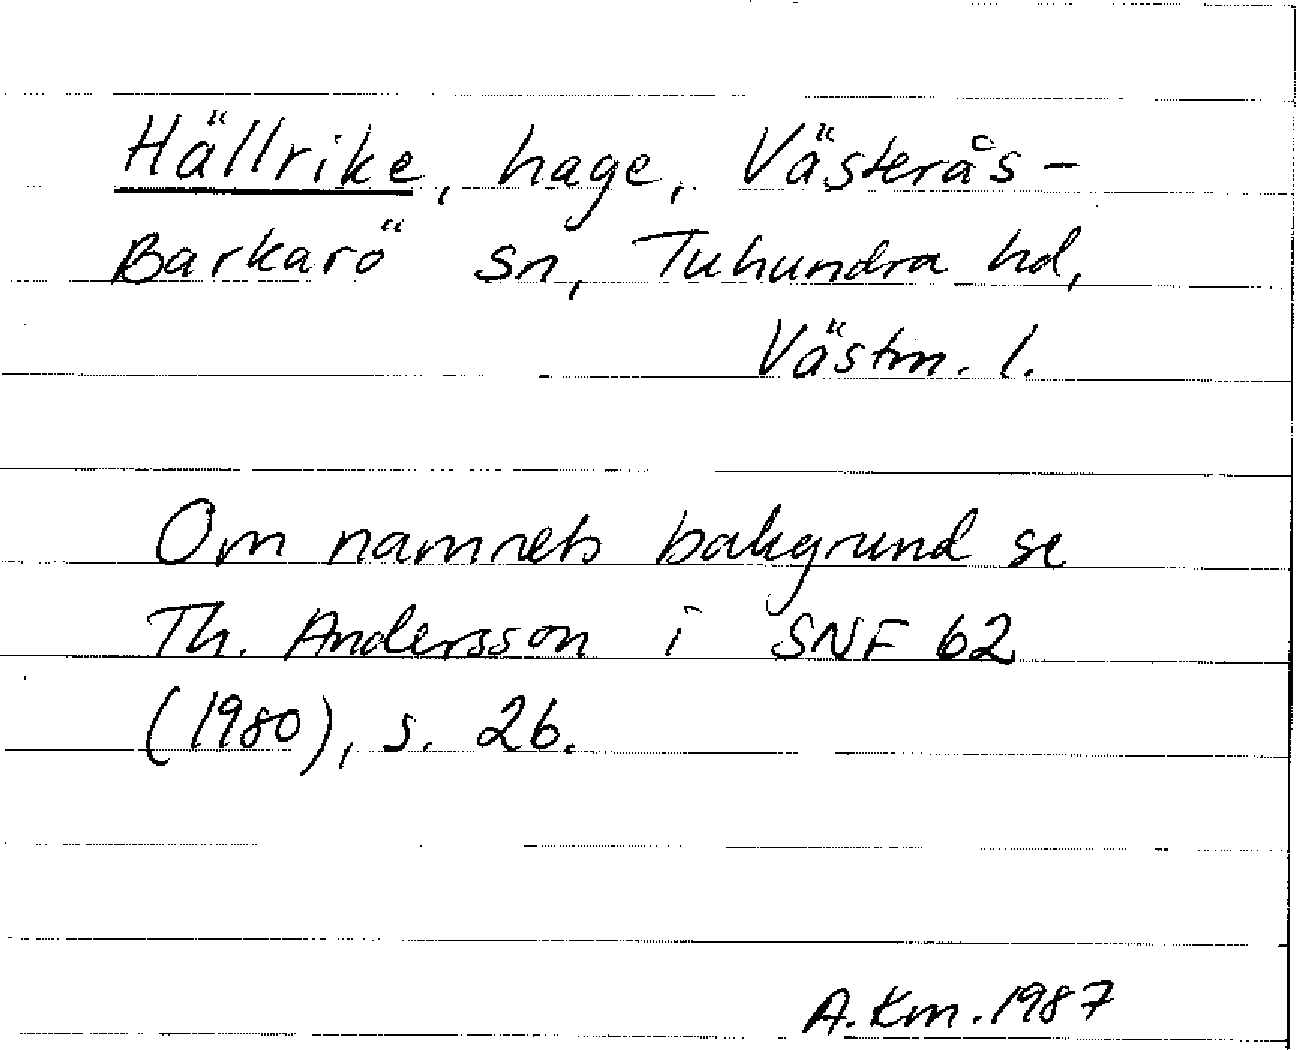 Hällrike, hage, Västerås-
Barkarö sn, Tuhundra hd,
Västm. l.
Om namnets bakgrund se
Th. Andersson i SNF 62
(1980), s. 26.
A. Km. 1987